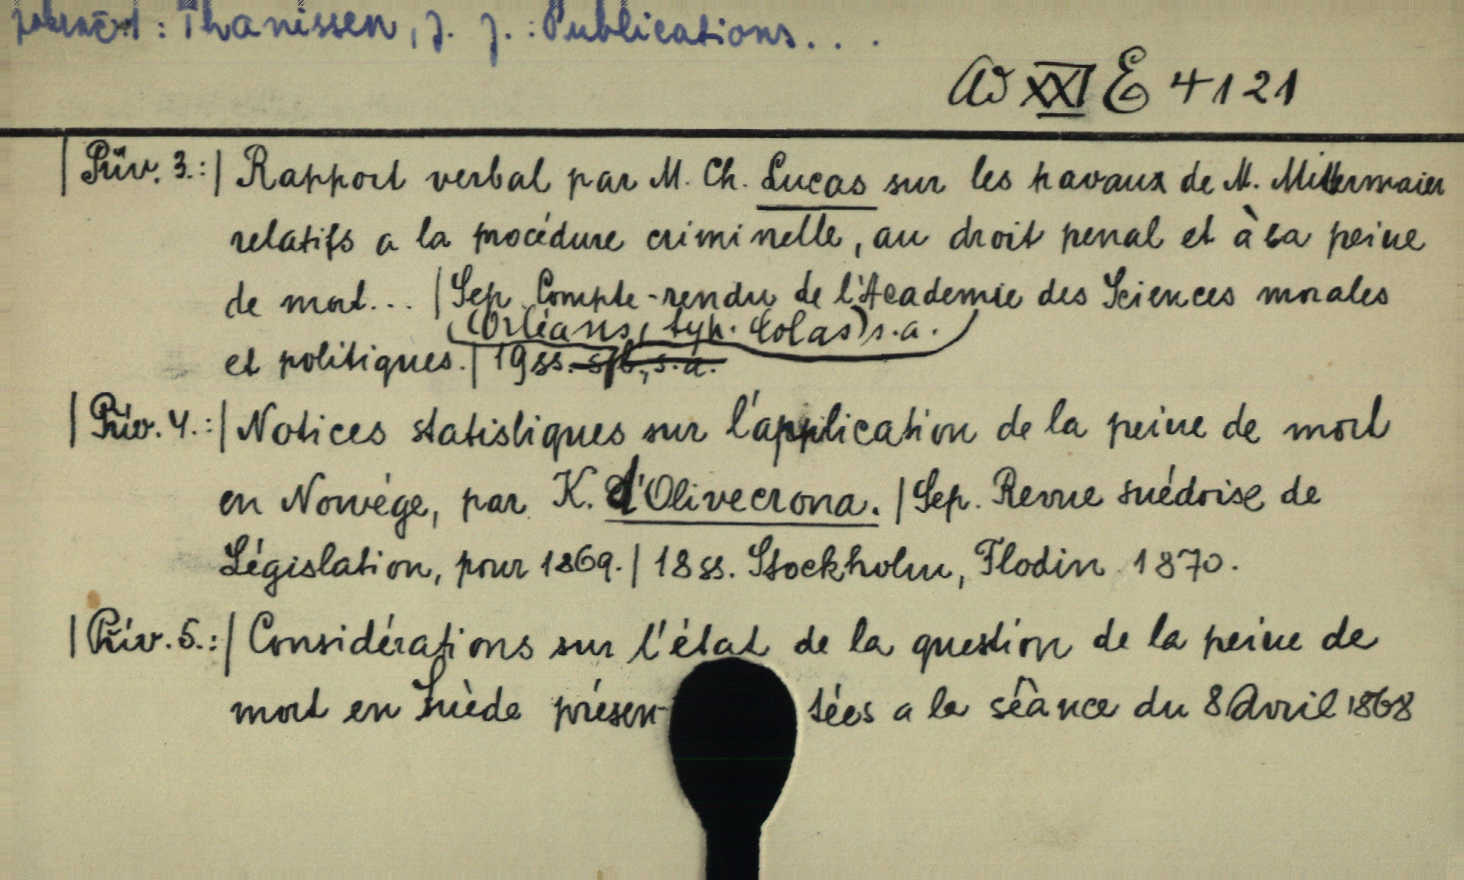 Thonissen, J. J.: Publications...
Ad XXI E 4121
|Přív. 3.:| Rapport verbal par M. Ch. Lucas sur les travaux de M. Mittermaier
relatifs a la procédure criminelle, au droit penal et à la peine
de mort... |Sep. Compte-rendu de l'Academie des Sciences morales
(Orléans, typ. Colas) s.a.
et politiques.| 19 ss. s.l., s.a.
|Přív. 4.:| Notices statistiques sur l'application de la peine de mort
en Norvége, par K. d'Olivecrona. |Sep. Revue suédoise de
Législation, pour 1869.| 18 ss. Stockholm, Flodin 1870.
|Přív. 5.:| Considérations sur l'état de la question de la peine de
mort en Suède présentées a la séance du 8 Avril 1868